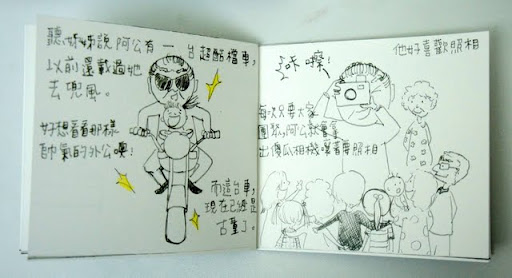 聽姊姊說阿公有一台超酷檔車，
以前還載過她
去兜風。
好想看看那樣
帥氣的外公噢！
而這台車，
現在已經是
古董了。
咔嚓！
他好喜歡照相
每次只要大家
團聚，阿公就會拿
出傻瓜相機嚷著要照相